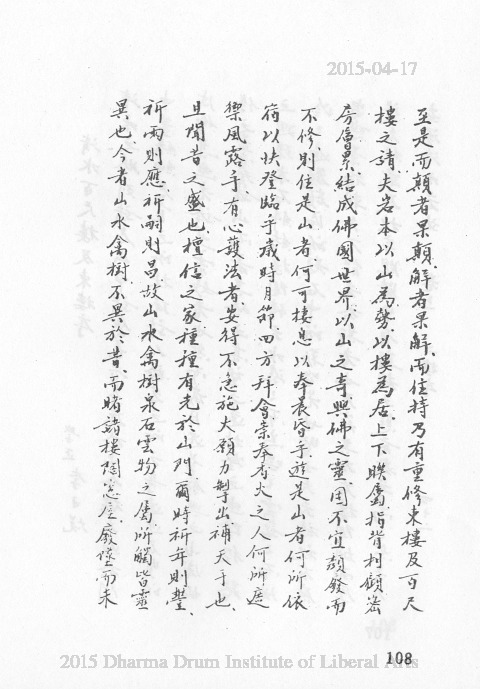 2015-04-17
至是而顛者果顛、解者果解、而住持乃有重修東樓及百尺
樓之請、夫岩本以山為勢、以樓為居、上下聯屬、指背相顧、密
房層累、結成佛國世界、以山之奇、興佛之靈、固不宜頹發而
不修、則住是山者、何可棲息以奉晨昏乎、遊是山者、何所依
藉以快登臨乎、歲時月節、四方拜會崇奉香火之人、何所遮
禦風露乎、有心護法者、安得不急施大願力、擊出補天手也、
且聞昔之盛也、檀信之家、種種有光於山門、爾時祈年則豐、
祈雨則應、祈嗣則昌、故山水禽樹泉石雲物之屬、所觸皆靈
異也、今者山水禽樹、不異於昔、而睹諸樓閣窓廡、廢墜而未
108
2015 Dharma Drum Institute of Liberal Arts